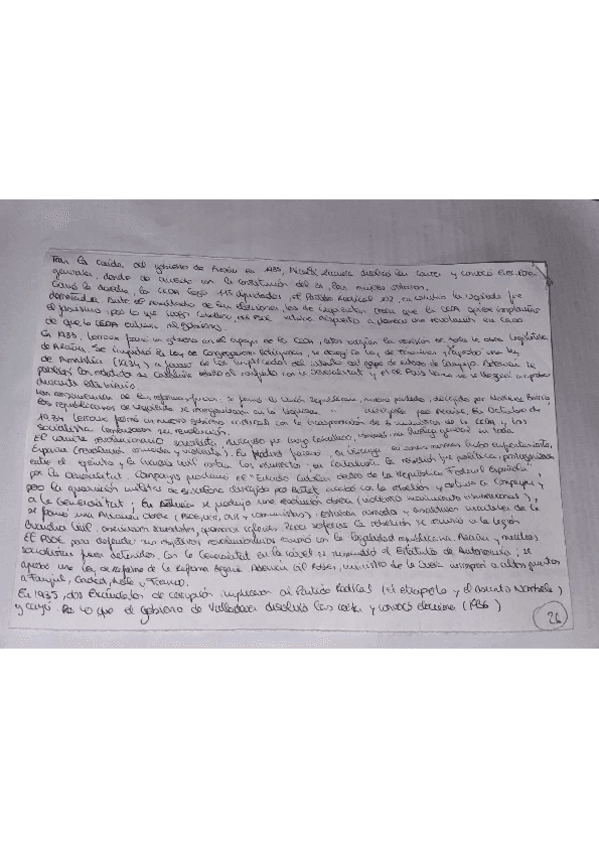 Tras la caída del gobierno de Azaña en 1933, Alcalá Zamora disolvió las Cortes y convocó elecciones
generales, donde de acuerdo con la constitución del 31, las mujeres votaron.
Ganó la derecha, la CEDA logró 115 diputados, el Partido Radical 102, en cambio la izquierda fue
derrotada. Ante el resultado de las elecciones, los de izquierdas creía que la CEDA quería implantar
el fascismo, por lo que Largo Caballero del PSOE estuvo dispuesto a llevar una revolución en caso
de que la CEDA entrara al gobierno.
En 1933, Lerroux formó un gobierno con el apoyo de la CEDA, estos exigían la revisión de toda la obra legislativa
de Azaña. Se impidió la Ley de Congregaciones Religiosas, se derogó la Ley de Términos y aprobó una ley
de Amnistía (1934) a favor de los implicados del intento del golpe de estado de Sanjurjo. Además la
el conflicto con la Generalitat y el del País Vasco no se llegó a aprobar
durante este bienio.
se formó la Unión Republicana, nuevo partido, dirigido por Martínez Barrio,
los republicanos de izquierda se reorganizaron en la Izquierda por Azaña. En Octubre de
1934 Lerroux formó un nuevo gobierno con la incorporación de 3 ministros de la CEDA y los
socialistas comenzaron su revolución.
El comité revolucionario socialista, dirigido por Largo Caballero, convocó una huelga general en toda
España (revolución armada y violenta). En Madrid fracasó, en zonas mineras hubo enfrentamientos
entre el ejército y la Guardia Civil contra los mineros, en Cataluña la rebelión fue política, protagonizada
por la Generalitat. Companys proclamó el "Estado Catalán dentro de la República Federal Española"
pero la guarnición militar de Barcelona dirigida por Batet acabó con la rebelión y detuvo a Companys y
a la Generalitat; En Asturias se produjo una revolución obrera (violento movimiento insurreccional),
se formó una Alianza Obrera (PSOE, UGT, CNT y comunistas), estaban armados y asaltaron cuarteles de la
Guardia Civil, asesinaron sacerdotes, quemaron iglesias. Franco sofoca la rebelión se reunió a la legión
El PSOE para defender sus objetivos revolucionarios rompió con la legalidad republicana. Azaña y muchos
socialistas fueron detenidos. Con la Generalitat en la cárcel se suspendió el Estatuto de Autonomía, se
aprobó una Ley de Reforma de la Reforma Agraria. Además Gil Robles, ministro de la Guerra incorporó a altos puestos
a Fanjul, Goded, Mola y Franco.
En 1935, dos Escándalos de corrupción implicaron al Partido Radical (el estraperlo y el asunto Nombela)
y cayó. Por lo que el gobierno de Valladares disolvió las cortes y convocó elecciones (1936)
26